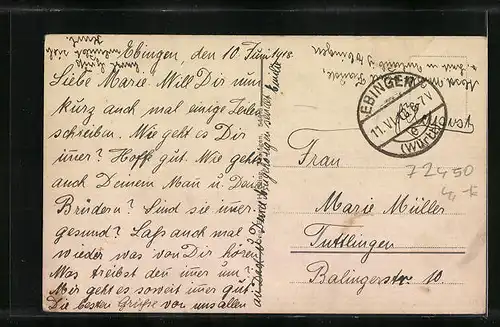 Ebingen, den 10. Juni 1918
Liebe Marie. Will Dir nun
kurz auch mal einige Zeilen
schreiben. Wie geht es Dir
imer? Hoffe gut. Wie geht's
auch Deinem Man̄ u. Dein
Brüdern? Sind sie im̄er
gesund? Laß auch mal
wieder was von Dir hören
Was treibst den im̄er um?
Mir geht es soweit im̄er gut.
Die besten Grüße von uns allen
an Dich u. Deine Angehörigen
EBINGEN
11.VI.18 6-7V
(Württ)
Frau
Marie Müller
Tuttlingen
Balingerstr. 10
72450